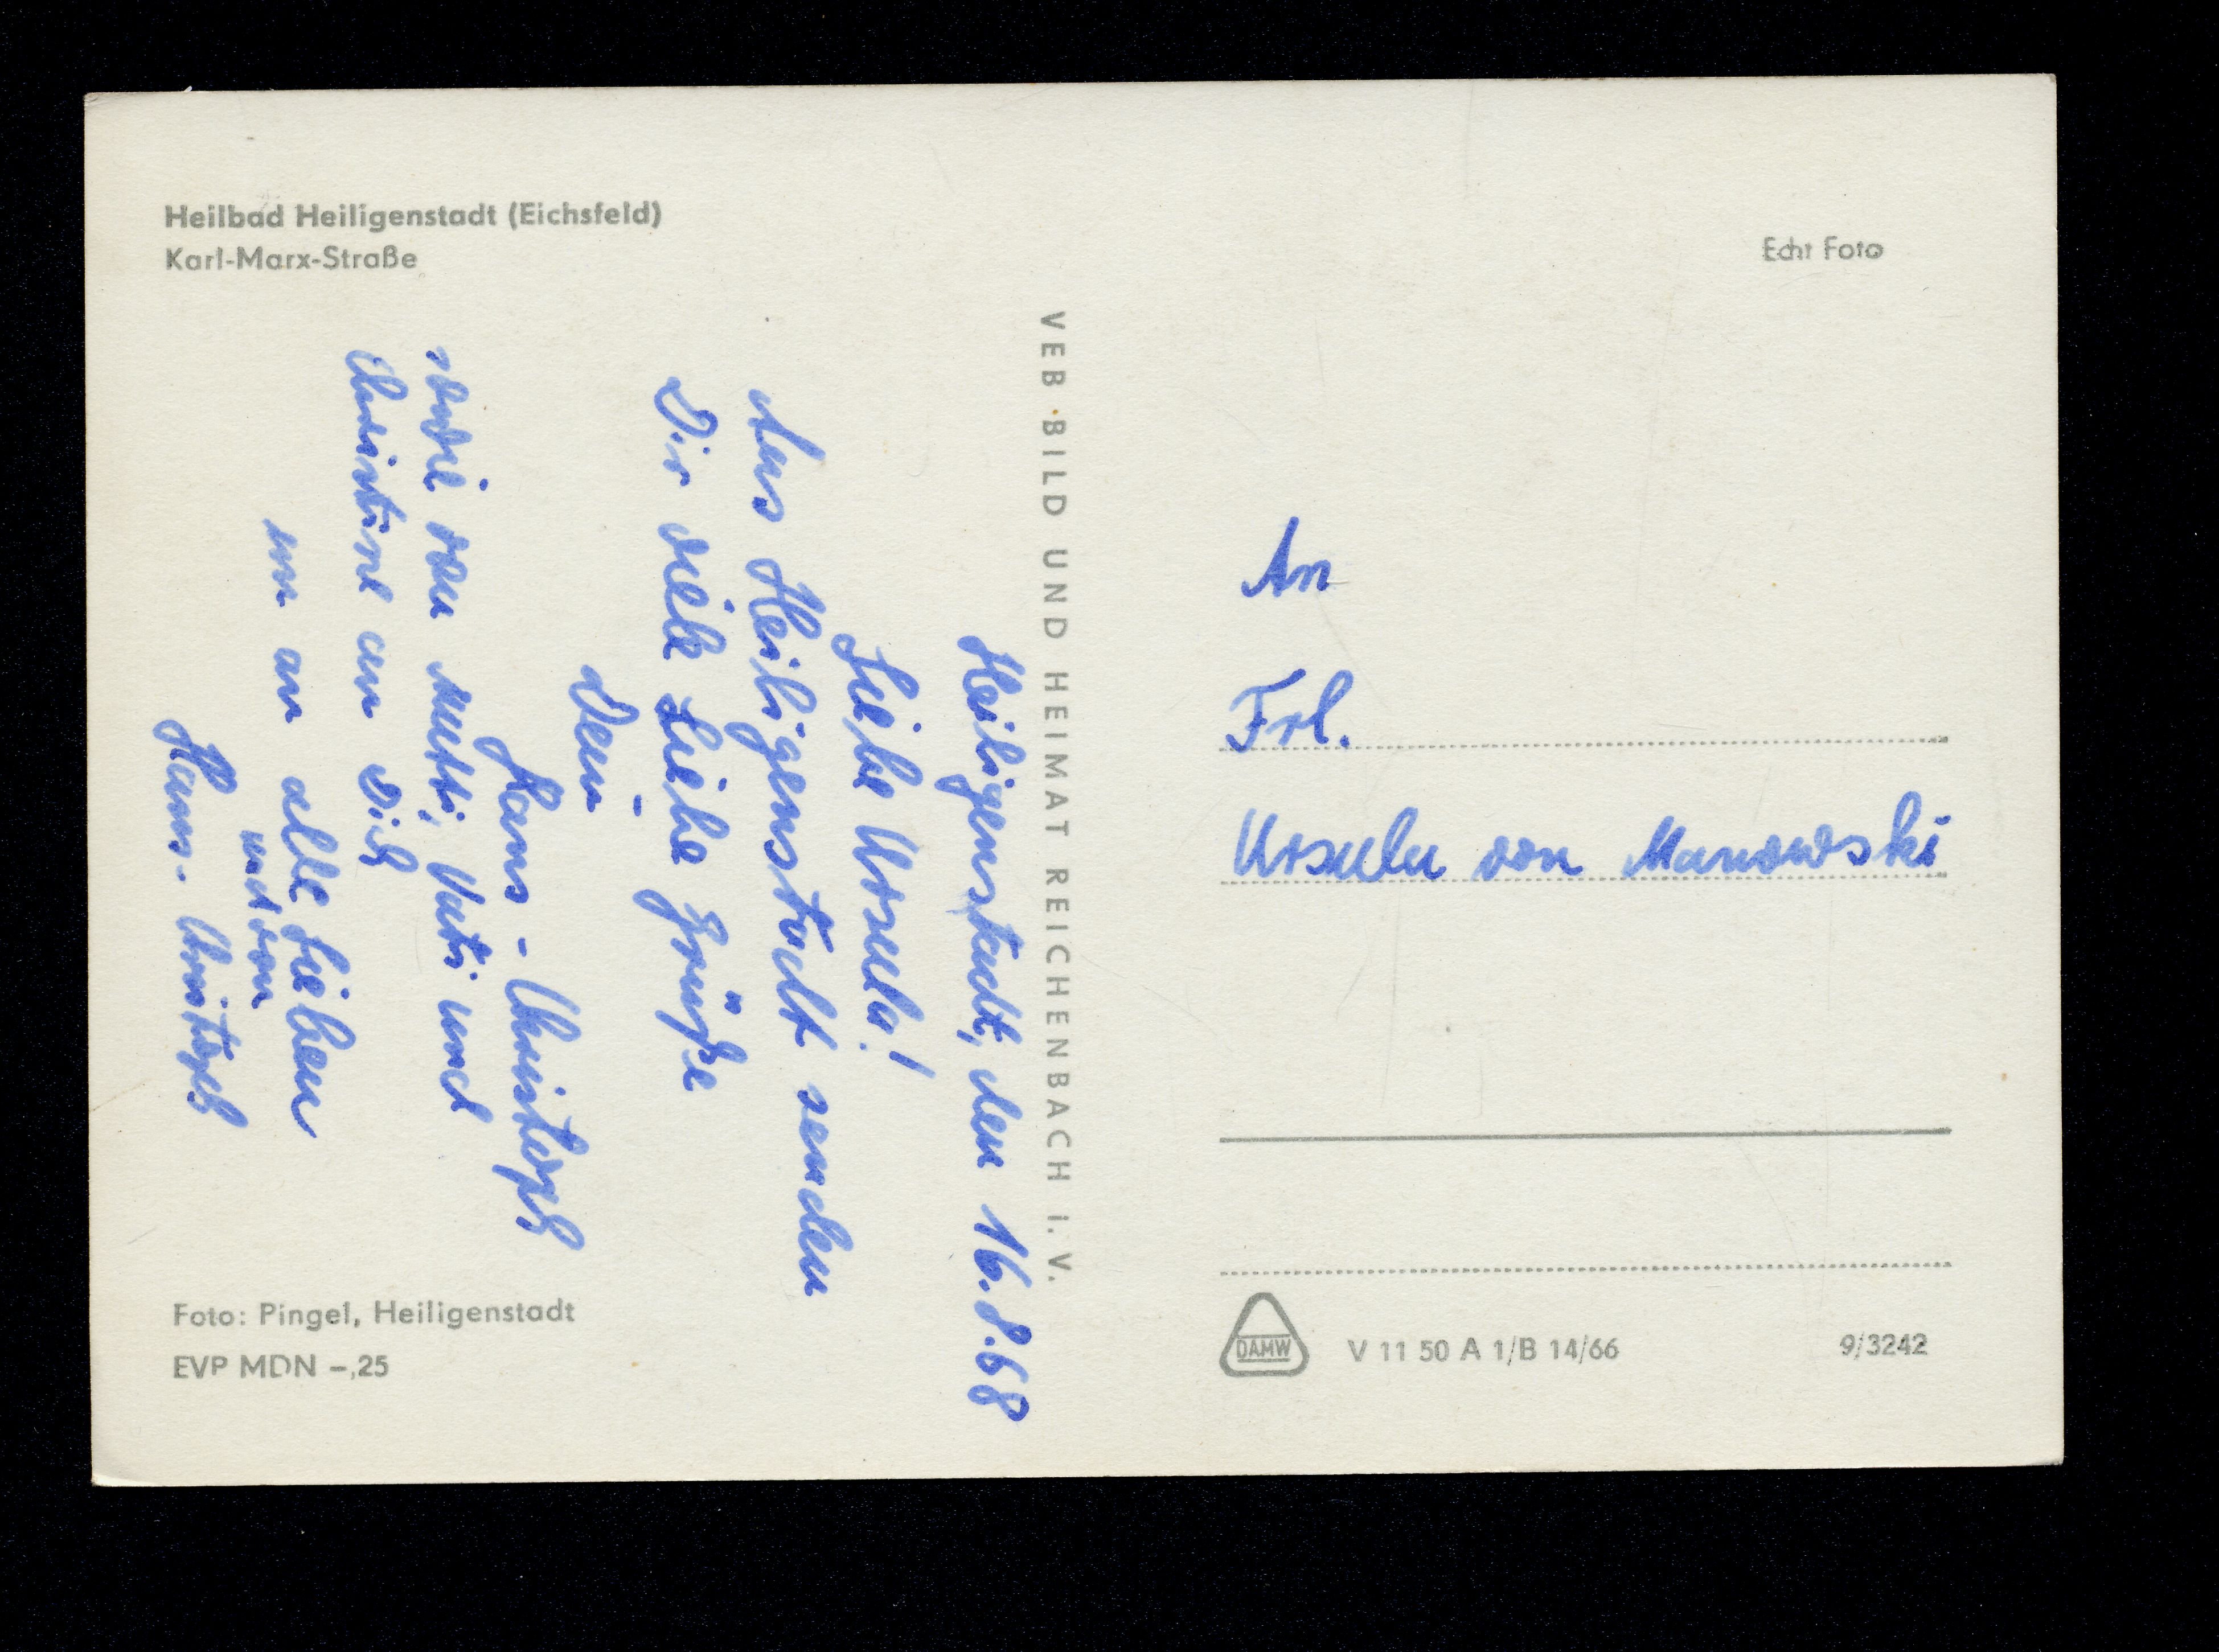 Heilbad Heiligenstadt (Eichsfeld)
Karl-Marx-Straße
Heiligenstadt, den 16.8.68
Liebe Ursula!
Aus Heiligenstadt senden
Dir viele Liebe Grüße
Dein
Hans-Christoph
sowie von Mutti, Vati und
Christine an Dich
an alle Lieben
von
Hans-Christoph
Foto: Pingel, Heiligenstadt
EVP MDN –,25
VEB BILD UND HEIMAT REICHENBACH I. V.
Echt Foto
An
Frl.
Ursula von Manowski
DAMW
V 11 50 A 1/B 14/66
9/3242